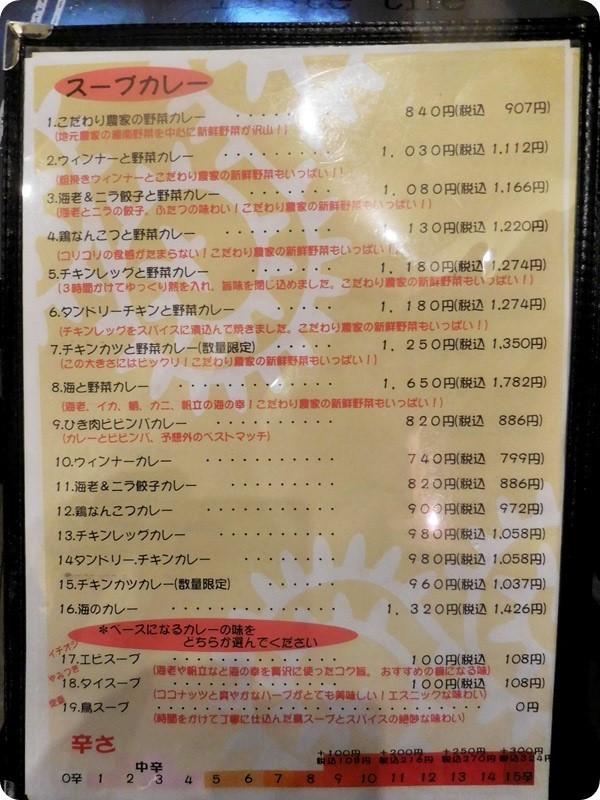 スープカレー
1.こだわり農家の野菜カレー ・・・・・・・ 840円(税込 907円)
(地元農家の湘南野菜を中心に新鮮野菜が沢山！)
2.ウィンナーと野菜カレー ・・・・・・・・ 1,030円(税込 1,112円)
(粗挽きウィンナーとこだわり農家の新鮮野菜もいっぱい！)
3.海老＆ニラ餃子と野菜カレー ・・・・・・ 1,080円(税込 1,166円)
(海老とニラの餃子。ふたつの味わい！こだわり農家の新鮮野菜もいっぱい！)
4.鶏なんこつと野菜カレー ・・・・・・・・ 1,130円(税込 1,220円)
(コリコリの食感がたまらない！こだわり農家の新鮮野菜もいっぱい！)
5.チキンレッグと野菜カレー ・・・・・・ 1,180円(税込 1,274円)
(3時間かけてゆっくり熱を入れ、旨味を閉じ込めました。こだわり農家の新鮮野菜もいっぱい！)
6.タンドリーチキンと野菜カレー ・・・・・ 1,180円(税込 1,274円)
(チキンレッグをスパイスに漬込んで焼きました。こだわり農家の新鮮野菜もいっぱい！)
7.チキンカツと野菜カレー(数量限定) ・・・・・・ 1,250円(税込 1,350円)
(この大きさにはビックリ！こだわり農家の新鮮野菜もいっぱい！)
8.海と野菜カレー ・・・・・・・・・・・ 1,650円(税込 1,782円)
(海老、イカ、蛸、カニ、帆立の海の幸！こだわり農家の新鮮野菜もいっぱい！)
9.ひき肉ビビンバカレー ・・・・・・・・・ 820円(税込 886円)
(カレーとビビンバ、予想外のベストマッチ)
10.ウィンナーカレー ・・・・・・・・・・ 740円(税込 799円)
11.海老＆ニラ餃子カレー ・・・・・・・・・・ 820円(税込 886円)
12.鶏なんこつカレー ・・・・・・・・・・ 900円(税込 972円)
13.チキンレッグカレー ・・・・・・・・・ 980円(税込 1,058円)
14タンドリー.チキンカレー ・・・・・・・ 980円(税込 1,058円)
15.チキンカツカレー(数量限定) ・・・・・・・ 960円(税込 1,037円)
16.海のカレー ・・・・・・・・・・・・ 1,320円(税込 1,426円)
＊ベースになるカレーの味を
どちらか選んでください
イチオシ
17.エビスープ ・・・・・・・・・・・・ 100円(税込 108円)
(海老や帆立など海の幸を贅沢に使ったコク旨。おすすめの癖になる味)
やみつき
18.タイスープ ・・・・・・・・・・・・ 100円(税込 108円)
(ココナッツと爽やかなハーブがとても美味しい！エスニックな味わい)
定番
19.鳥スープ ・・・・・・・・・・・・・ 0円
(時間をかけて丁寧に仕込んだ鳥スープとスパイスの絶妙な味わい)
辛さ
+100円 +200円 +250円 +300円
税込108円 税込216円 税込270円 税込324円
中辛
0辛 1 2 3 4 5 6 7 8 9 10 11 12 13 14 15辛